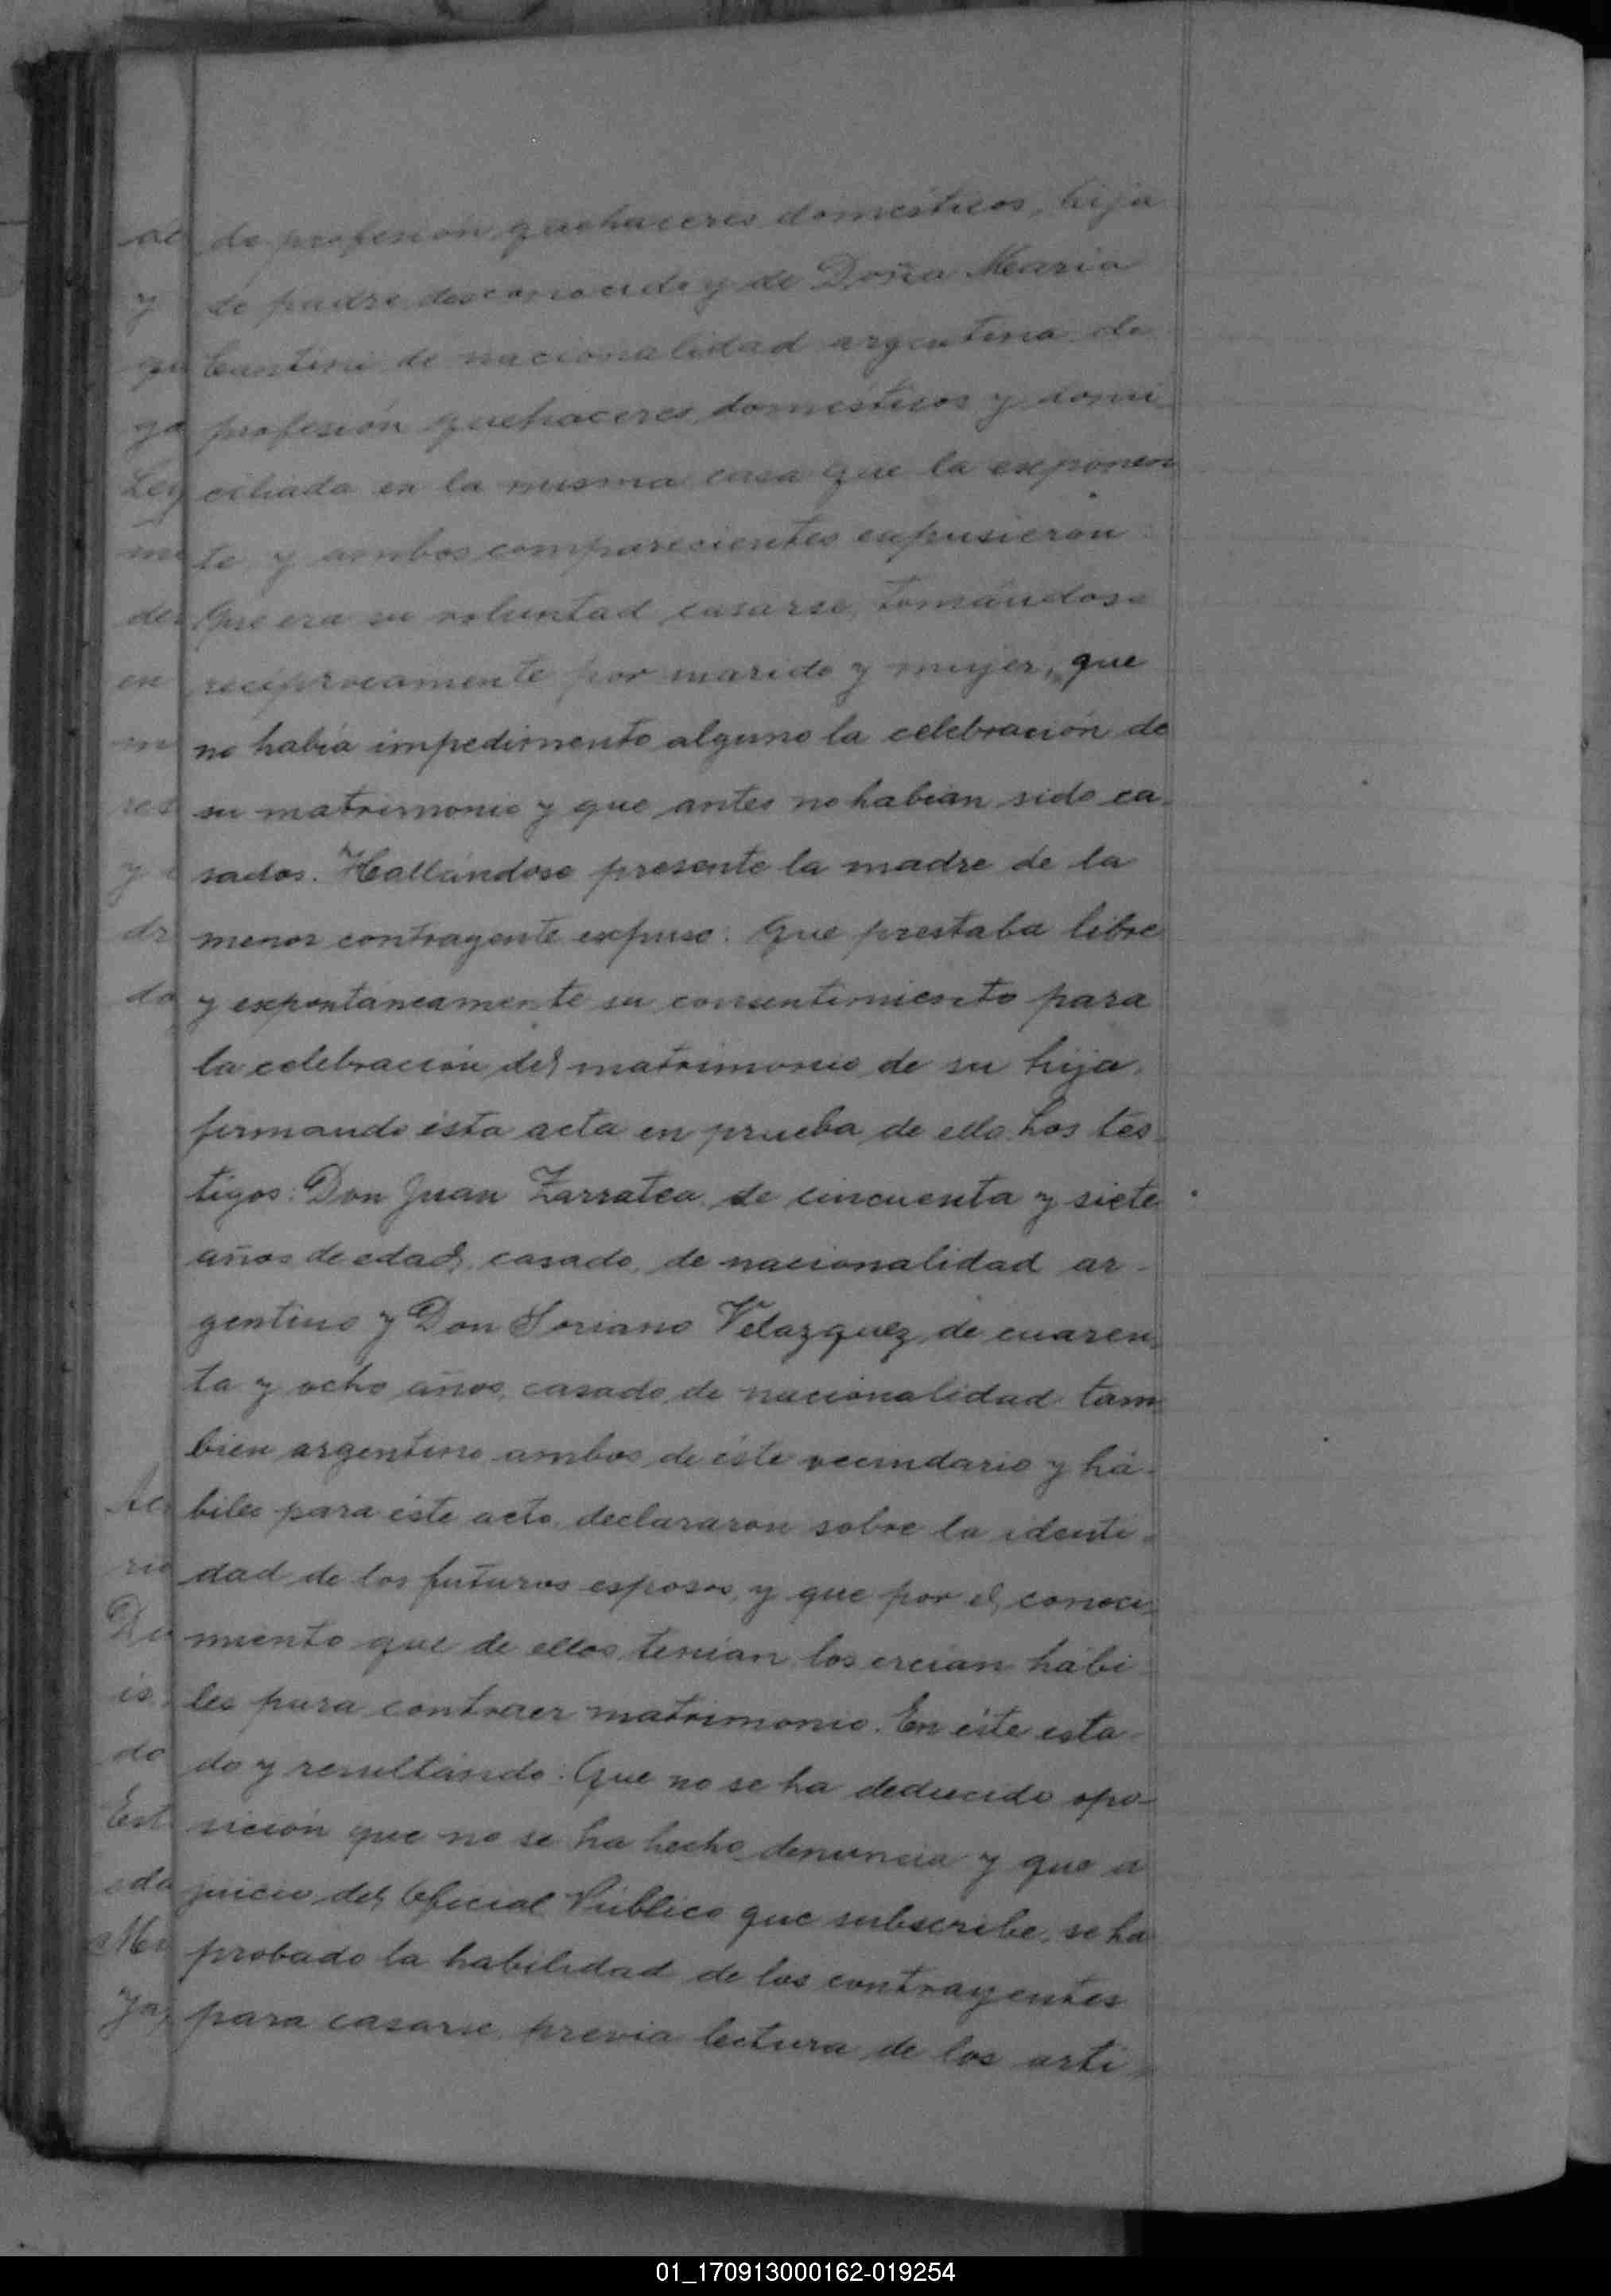 de profesión quehaceres domésticos, hija
de padre desconocido y de Doña Maria
de nacionalidad argentina de
profesión quehaceres domésticos y domi
ciliada en la misma casa que la exponen
te y ambos comparecientes expusieron:
Que era su voluntad casarse, tomándose
recíprocamente por marido y mujer, que
no había impedimento alguno la celebración de
su matrimonio y que antes no habían sido ca-
sados. Hallándose presente la madre de la
menor contrayente expuso: Que prestaba libre
y expontáneamente su consentimiento para
la celebración del matrimonio de su hija,
firmando ésta acta en prueba de ello. Los tes-
tigos: Don Juan Zarratea, de cincuenta y siete
años de edad, casado, de nacionalidad ar-
gentino y Don Soriano Velazquez, de cuaren-
ta y ocho años, casado, de nacionalidad tam
bien argentino ambos de éste vecindario y há-
biles para éste acto, declararon sobre la identi-
dad de los futuros esposos, y que por el conoci-
miento que de ellos tenían los creían hábi
les para contraer matrimonio. En éste esta-
do y resultando: Que no se ha deducido opo-
sición que no se ha hecho denuncia y que a
juicio del Oficial Público que subscribe, se ha
probado la habilidad de los contrayentes
para casarse, previa lectura de los arti-
01_170913000162-019254